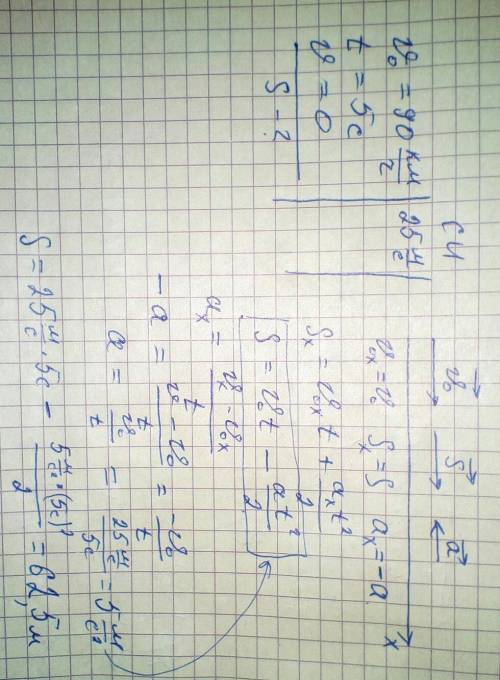 υ₀ = 90 км/г | СИ 25 м/с
t = 5с
υ = 0
S - ?
υ₀→ S→ a→
x
υ₀ₓ = υ₀ Sₓ = S aₓ = -a
Sₓ = υ₀ₓt + aₓt²/2
S = υ₀t - at²/2
aₓ = (υₓ - υ₀ₓ)/t
-a = (υ - υ₀)/t = -υ₀/t
a = υ₀/t = 25 м/с / 5с = 5 м/с²
S = 25 м/с · 5с - 5 м/с² · (5с)²/2 = 62,5 м